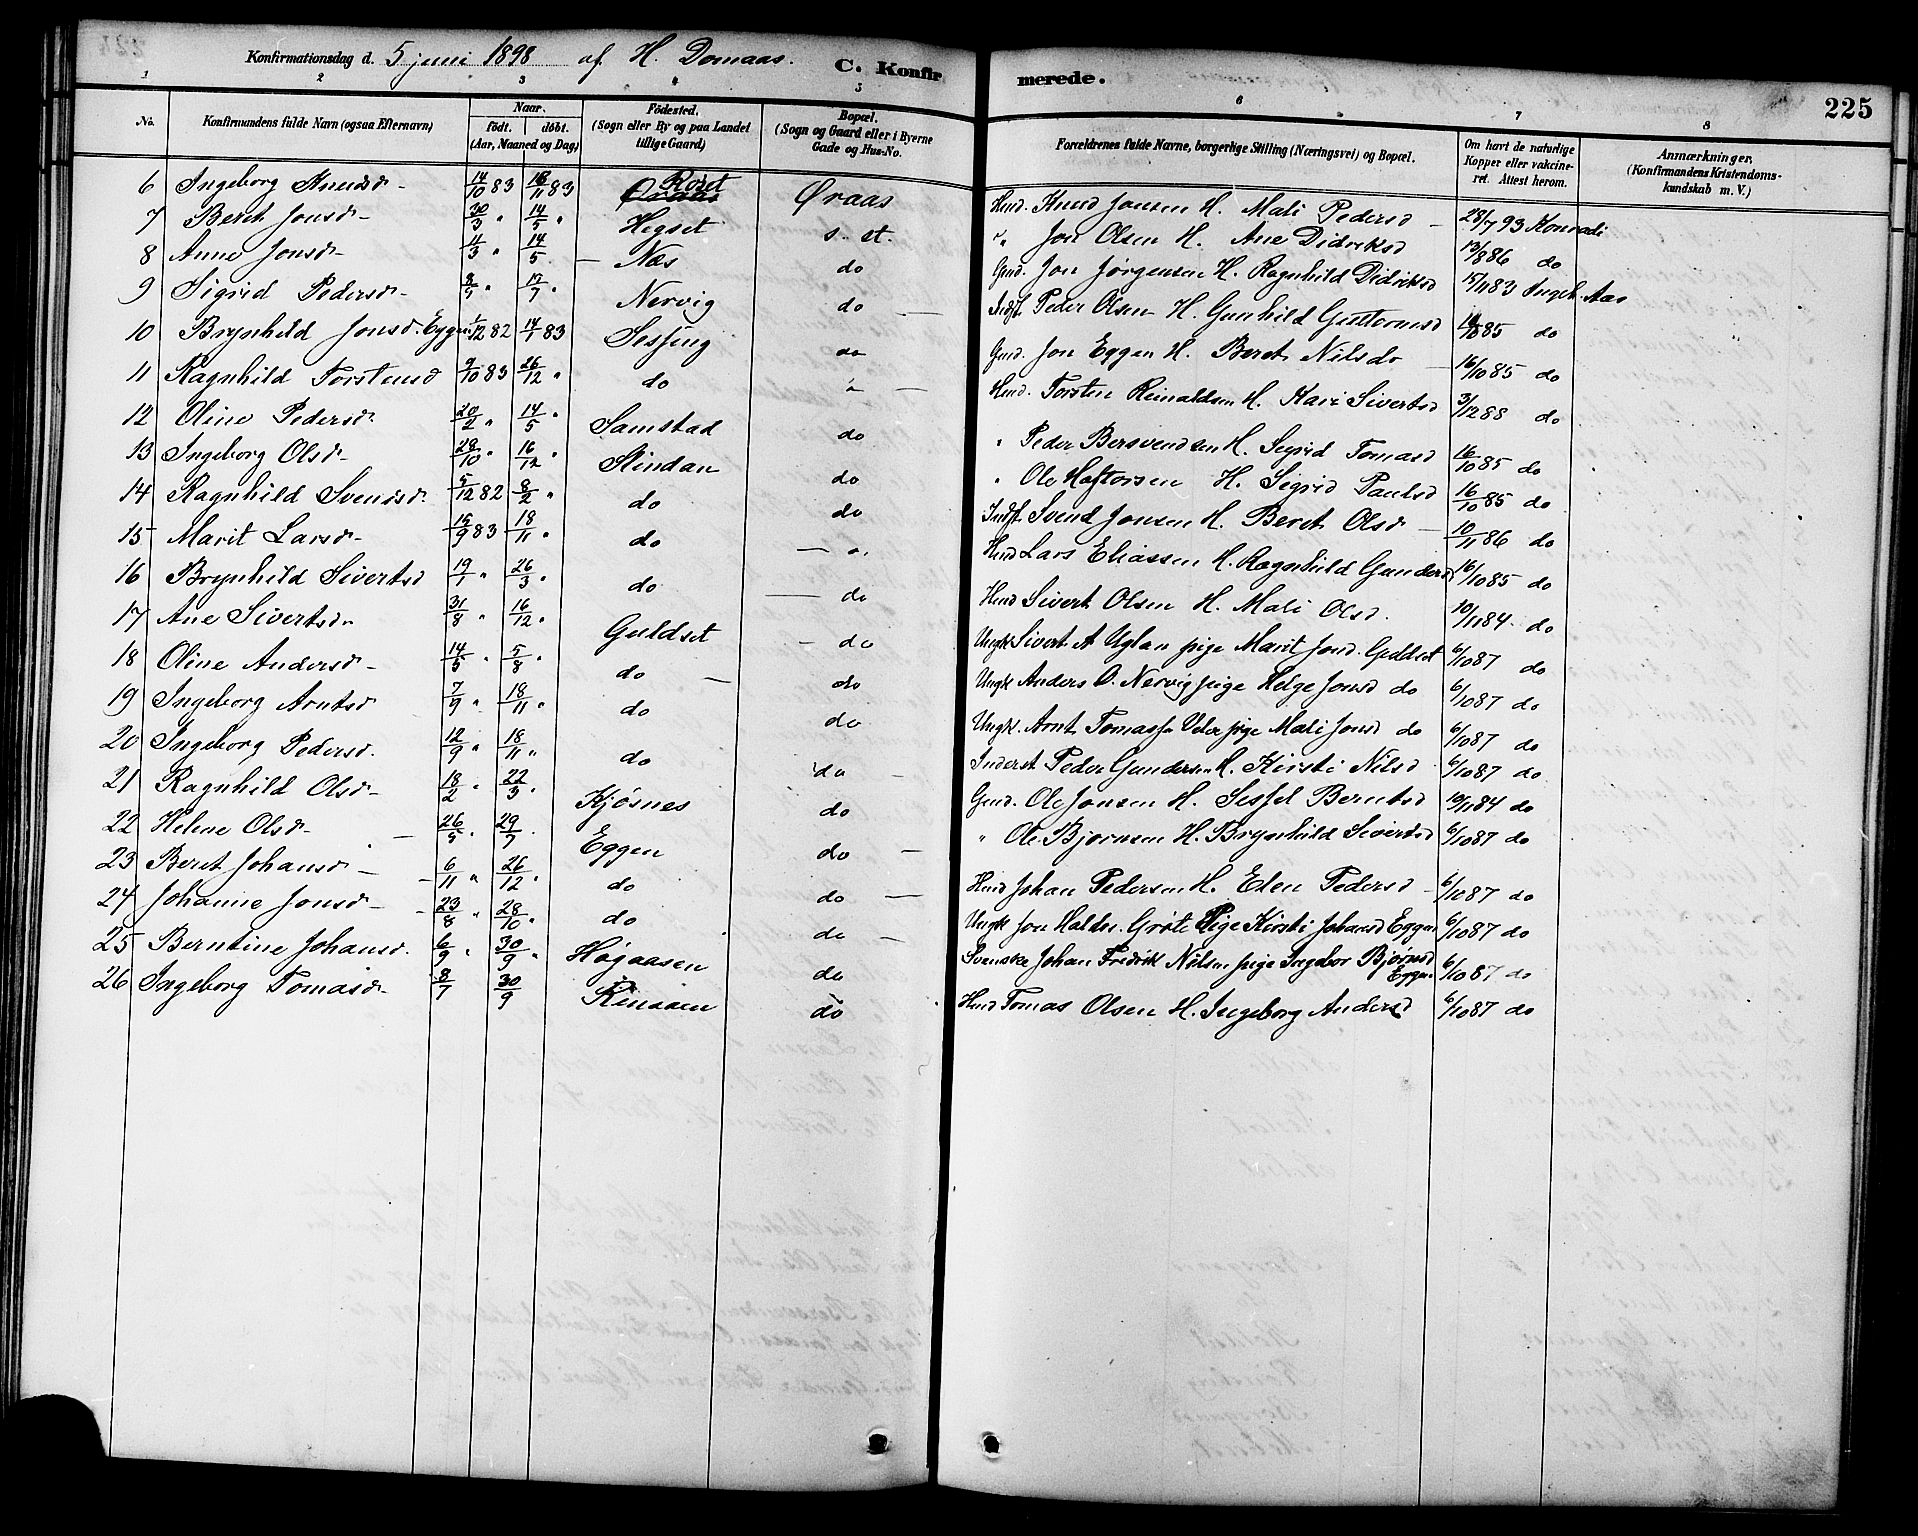 Konfirmationsdag d. 5 juni 1898 af H. Domaas. C. Konfirmerede. 225
1 2 3 4 5 6 7 8
No. Konfirmandens fulde Navn (ogsaa Efternavn) Naar. födt. döbt. (Aar, Maaned og Dag) Födested. (Sogn eller By og paa Landet tillige Gaard) Bopæl. (Sogn og Gaard eller i Byerne Gade og Hus-No. Forældrenes fulde Navne, borgerlige Stilling (Næringsvei) og Bopæl. Om havt de naturlige Kopper eller vakcineret. Attest herom. Anmærkninger. (Konfirmandens Kristendomskundskab m. V.)
6 Ingeborg Knudsd 14/10 83 18/11 83 Roset Øraas Hmd. Knud Jonsen H. Mali Pedersd 28/7 93 Konradi
7 Beret Jonsd 30/3 " 14/5 " Hegset s. st. " Jon Olsen H. Ane Didriksd 13/8 86 do
8 Anne Jonsd 11/3 " 14/5 Næs do Gmd. Jon Jørgensen H. Ragnhild Didriksd 15/11 83 Ingeb. Aas
9 Sigrid Pedersd 8/5 " 17/7 " Nervig do Indst. Peder Olsen H. Gunhild Guttormsd 85 do
10 Brynhild Jonsd. Eggen 1/12 82 14/1 83 Sessing do Gmd. Jon Eggen H. Beret Nilsd 16/10 85 do
11 Ragnhild Torstensd 9/10 83 26/12 " do " Hmd. Torsten Reinaldsen H. Kari Sivertsd 3/12 88 do
12 Oline Pedersd 20/2 " 14/5 " Samstad do " Peder Bersvendsen H. Segrid Tomasd 16/10 85 do
13 Ingeborg Olsd 28/10 " 16/12 " Stindan do " Ole Haftorsen H. Sigrid Paulsd 16/10 85 do
14 Ragnhild Svendsd. 5/12 82 8/2 " do do Indst. Svend Jonsen H. Beret Olsd 10/11 86 do
15 Marit Larsd 15/9 83 18/11 " do Hmd Lars Eliassen H. Ragnhild Gundersd 16/10 85 do
16 Brynhild Sivertsd 19/1 " 26/3 " do do Hmd Sivert Olsen H. Mali Olsd. 10/11 84 do
17 Ane Sivertsd 31/8 " 16/12 " Guldset do Ungk Sivert A Uglan pige Marit Jonsd. Guldset 6/10 87 do
18 Oline Andersd 14/5 " 5/8 " do do Ungk Anders O. Nervig pige Helge Jonsd do 6/10 87 do
19 Ingeborg Arntsd 7/9 " 18/11 " do do Ungk. Arnt Tomass pige Mali Jonsd do 6/10 87 do
20 Ingeborg Pedersd. 12/9 " 18/11 " do do Inderst Peder Gundersen H. Kirsti Nilsd 6/10 87 do
21 Ragnhild Olsd 18/2 " 22/3 " Kjösnes do Gmd. Ole Jonsen H. Sessel Berntsd 10/11 84 do
22 Helene Olsd 26/5 " 29/7 " Eggen do " Ole Bjornsen H. Brynhild Sivertsd 6/10 87 do
23 Beret Johansd 6/11 " 26/12 " do do Hmd Johan Pedersen H. Elen Pedersd 6/10 87 do
24 Johanne Jonsd 23/8 " 28/10 " do do Ungk Jon Grøte Pige Kirsti Johansd Eggen 6/10 87 do
25 Berntine Johansd. 6/9 " 30/9 " Högaasen do Svenske Johan Fredrik Nilsen pige Ingebor Bjørnsd Eggen 6/10 87 do
26 Ingeborg Tomasd 8/7 30/9 Rinaaen do Hmd Tomas Olsen H. Ingeborg Andersd 6/10 87 do